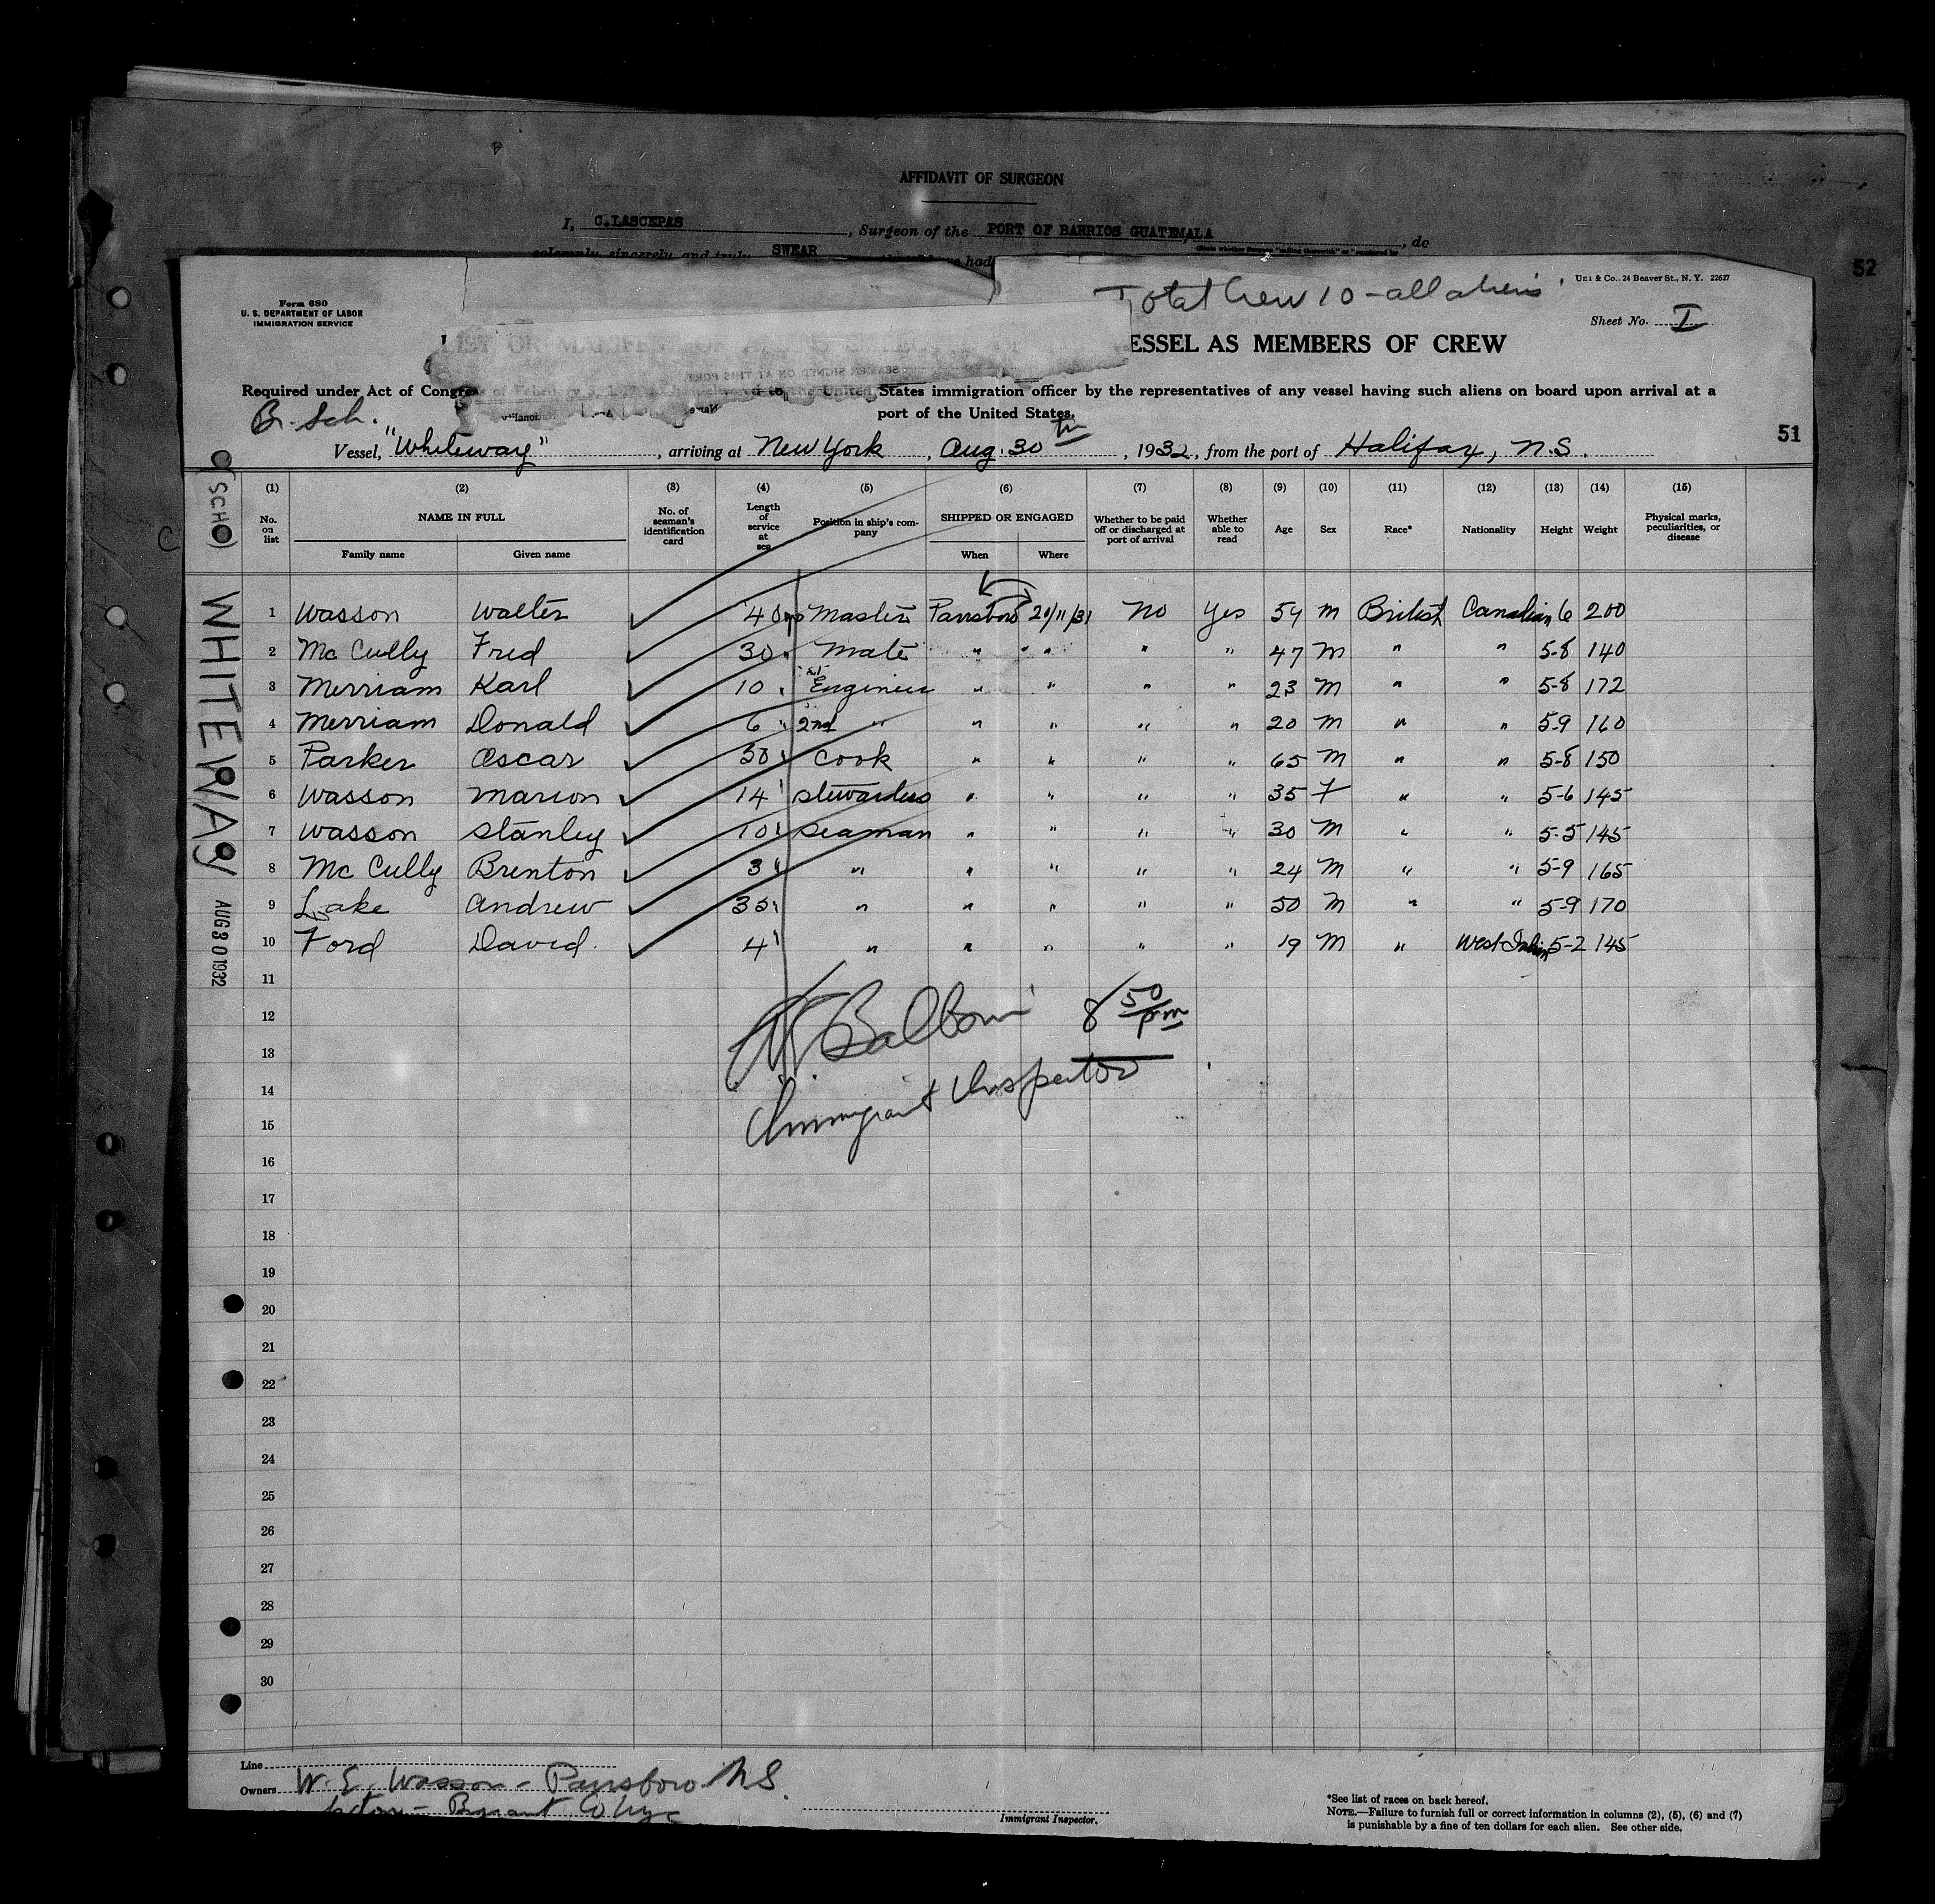 AFFIDAVIT OF SURGEON
I, C.LASCEPAS, Surgeon of the PORT OF BARRIOS GUATEMALA, do
solemnly, sincerely, and truly SWEAR had
52
Total Crew 10 - all aliens
24 Beaver St., N. Y. 22627
Form 680
U. S. DEPARTMENT OF LABOR
IMMIGRATION SERVICE
Sheet No. I
ESSEL AS MEMBERS OF CREW
Required under Act of Congress of February 5, to the United States immigration officer by the representatives of any vessel having such aliens on board upon arrival at a
port of the United States.
Br. Sch.
51
Vessel, "Whiteway", arriving at New York, Aug. 30th, 1932, from the port of Halifax, N.S.
(SCH)
WHITEWAY
AUG 30 1932
(1) (2) (3) (4) (5) (6) (7) (8) (9) (10) (11) (12) (13) (14) (15)
No. on list NAME IN FULL No. of seaman's identification card Length of service at sea Position in ship's company SHIPPED OR ENGAGED Whether to be paid off or discharged at port of arrival Whether able to read Age Sex Race* Nationality Height Weight Physical marks, peculiarities, or disease
Family name Given name When Where
1 Wasson Walter 40 Master Parrsboro 20/11/31 No Yes 54 M British Canadian 6 200
2 McCully Fred 30 " Mate " " " " 47 M " " 5-8 140
3 Merriam Karl 10 " 1st Engineer " " " " 23 M " " 5-8 172
4 Merriam Donald 6 " 2nd " " " " " 20 M " " 5-9 160
5 Parker Oscar 50 " Cook " " " " 65 M " " 5-8 150
6 Wasson Marion 14 " Stewardess " " " " 35 F " " 5-6 145
7 Wasson Stanley 10 " Seaman " " " " 30 M " " 5-5 145
8 McCully Brenton 3 " " " " " " 24 M " " 5-9 165
9 Lake Andrew 35 " " " " " " 50 M " " 5-9 170
10 Ford David. 4 " " " " " " 19 M " West Indian 5-2 145
11
12
13
14
15
16
17
18
19
20
21
22
23
24
25
26
27
28
29
30
8 50 pm
Immigrant Inspector
Line
Owners W. E. Wasson - Parrsboro N.S.
Immigrant Inspector.
*See list of races on back hereof.
NOTE.—Failure to furnish full or correct information in columns (2), (5), (6) and (7)
is punishable by a fine of ten dollars for each alien. See other side.